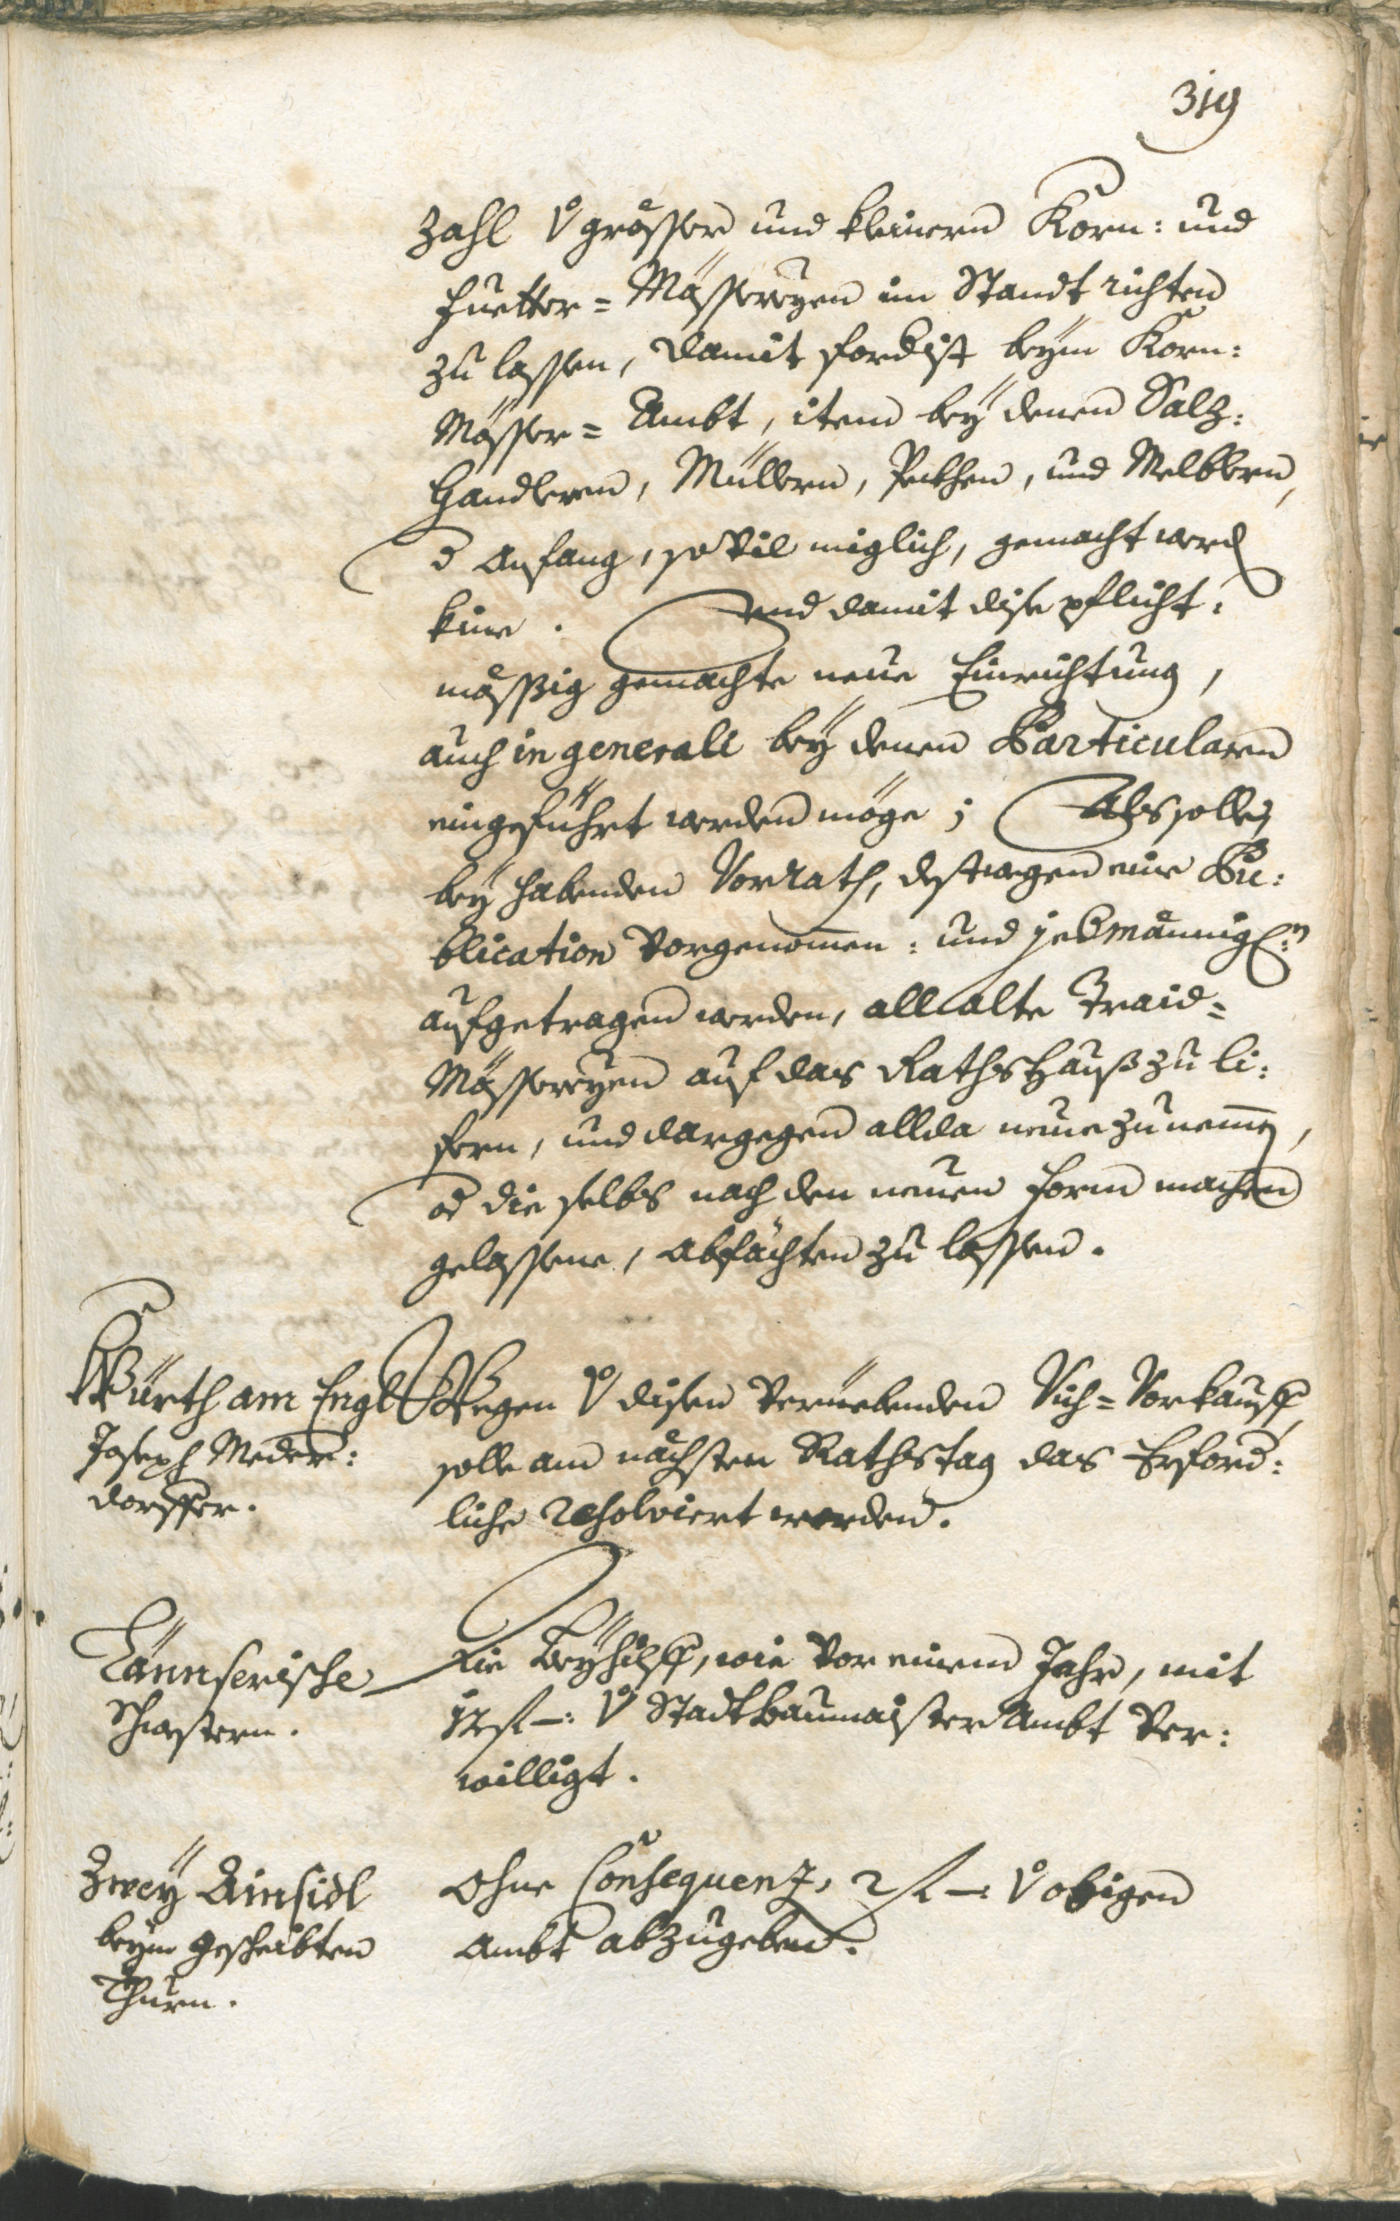 319
Zahl v grösser und kleinern Korn: und
fuetter= Mässereyen im Standt richten
zu lassen, damit fordist beÿm Korn:
Mässer= Ambt, item beÿ denen Salz:
Handlern, Müllern, Peckhen, und Melblern,
d Anfang, so vil miglich, gemacht werden
kine. Und damit dise pflicht:
mässßig gemachte neue Einrichtung,
auch in generali beÿ denen Particularen
eingeführt werden möge; Als solle
beÿ habenden Vorrath, destwegen eine Pu:
blication vorgenomen: und jedmännigl:n
aufgetragen werden, all alte Traid=
Mässereyen auf das RathsHauß zu li:
fern, und dargegen allda neue zu nemen,
od die selbs nach den neuen form machen
gelassene, abfächten zu lassen.
Würth am Engl
Joseph Meder:
dorffer.
Wegen v disen veruebenden Vich= Vorkauff,
solle am nächsten Rathstag das Erford:
liche resolviert werden.
Tännserische
Schwestern.
Die Beÿhilff, wie vor einem Jahr, mit
12 f —: v StadtBaumaisterAmbt ver:
willigt.
Zweÿ Ainsidl
beym gescheibten
Thurn.
Ohne Consequenz, 2 f —: v obigen
Ambt abzugeben.